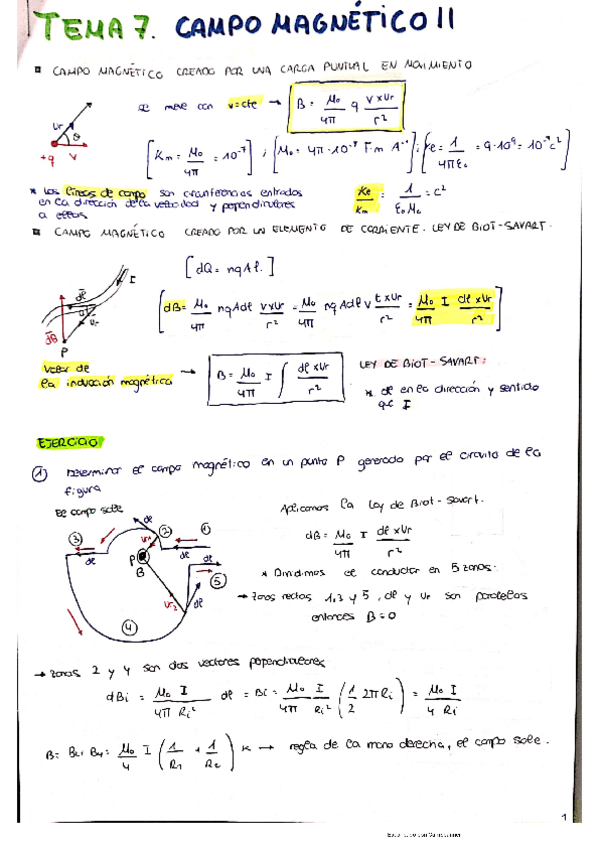 TEMA 7. CAMPO MAGNÉTICO II
CAMPO MAGNÉTICO CREADO POR UNA CARGA PUNTUAL EN MOVIMIENTO
se mueve con v=cte → B = μ₀/4π q v×ur/r²
ur θ +q v
[Km = μ₀/4π = 10⁻⁷] ; [μ₀ = 4π·10⁻⁷ T·m A⁻¹] ; [Ke = 1/4πε₀ = 9·10⁹ = 10⁻⁷c²]
* Las líneas de campo son circunferencias centradas
en la dirección de la velocidad y perpendiculares
a ellas
Ke/Km = 1/ε₀μ₀ = c²
CAMPO MAGNÉTICO CREADO POR UN ELEMENTO DE CORRIENTE. LEY DE BIOT-SAVART.
[dQ = nqAl.]
dl I ur dB P
[dB = μ₀/4π nqAdl v×ur/r² = μ₀/4π nqAdl v t×ur/r² = μ₀/4π I dl×ur/r²]
Vector de
la inducción magnética → B = μ₀/4π I ∫ dl×ur/r²
LEY DE BIOT-SAVART:
* dl en la dirección y sentido
que I
EJERCICIO
① Determinar el campo magnético en un punto P generado por el circuito de la
figura
El campo sale
Aplicamos la ley de Biot-Savart.
dB = μ₀/4π I dl×ur/r²
dl ② ① ③ ur₁ dl dl dl P B ⑤ ur₂ dl ④
* Dividimos el conductor en 5 zonas:
→ Zonas rectas 1, 3 y 5, dl y ur son paralelos
entonces B=0
→ zonas 2 y 4 son dos vectores perpendiculares
dBi = μ₀ I/4π Ri² dl = Bi = μ₀ I/4π Ri² (1/2 2πRi) = μ₀ I/4 Ri
B = B2+B4 = μ₀/4 I (1/R₁ + 1/R₂) k → regla de la mano derecha, el campo sale.
1